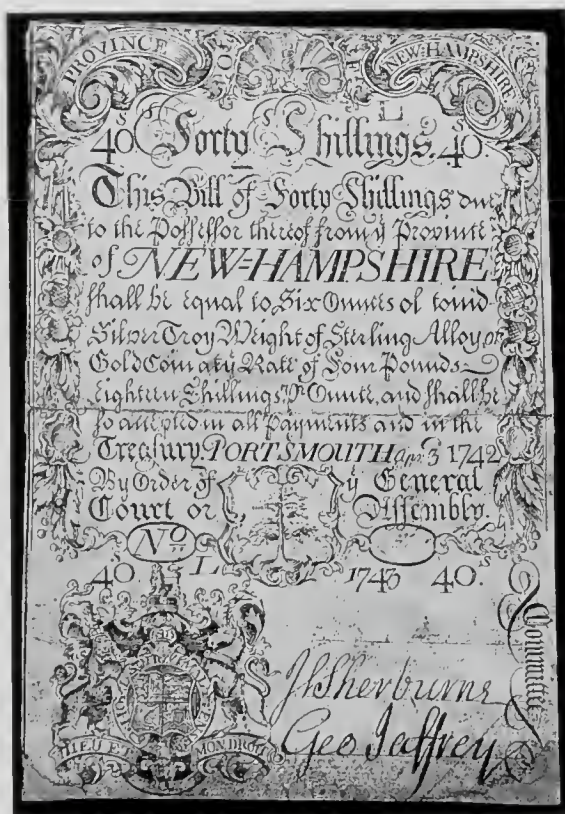 PROVINCE OF NEW-HAMPSHIRE
L
40.S Forty Shillings. 40.S
This Bill of Forty Shillings due
to the Possessor thereof from yͤ Province
of NEW=HAMPSHIRE
shall be equal to Six Ounces of coind
Silver Troy Weight of Sterling Alloy or
Gold Coin at yͤ Rate of Four Pounds
Eighteen Shillings Pr Ounce, and shall be
so accepted in all payments and in the
Treasury. PORTSMOUTH apr. 3 1742
By Order of yͤ General
Court or Assembly.
No
40.S L 1743 40.s
HONI SOIT QUI MAL Y PENSE
DIEU ET MON DROIT
Committee
Sherburne
Geo Jaffrey